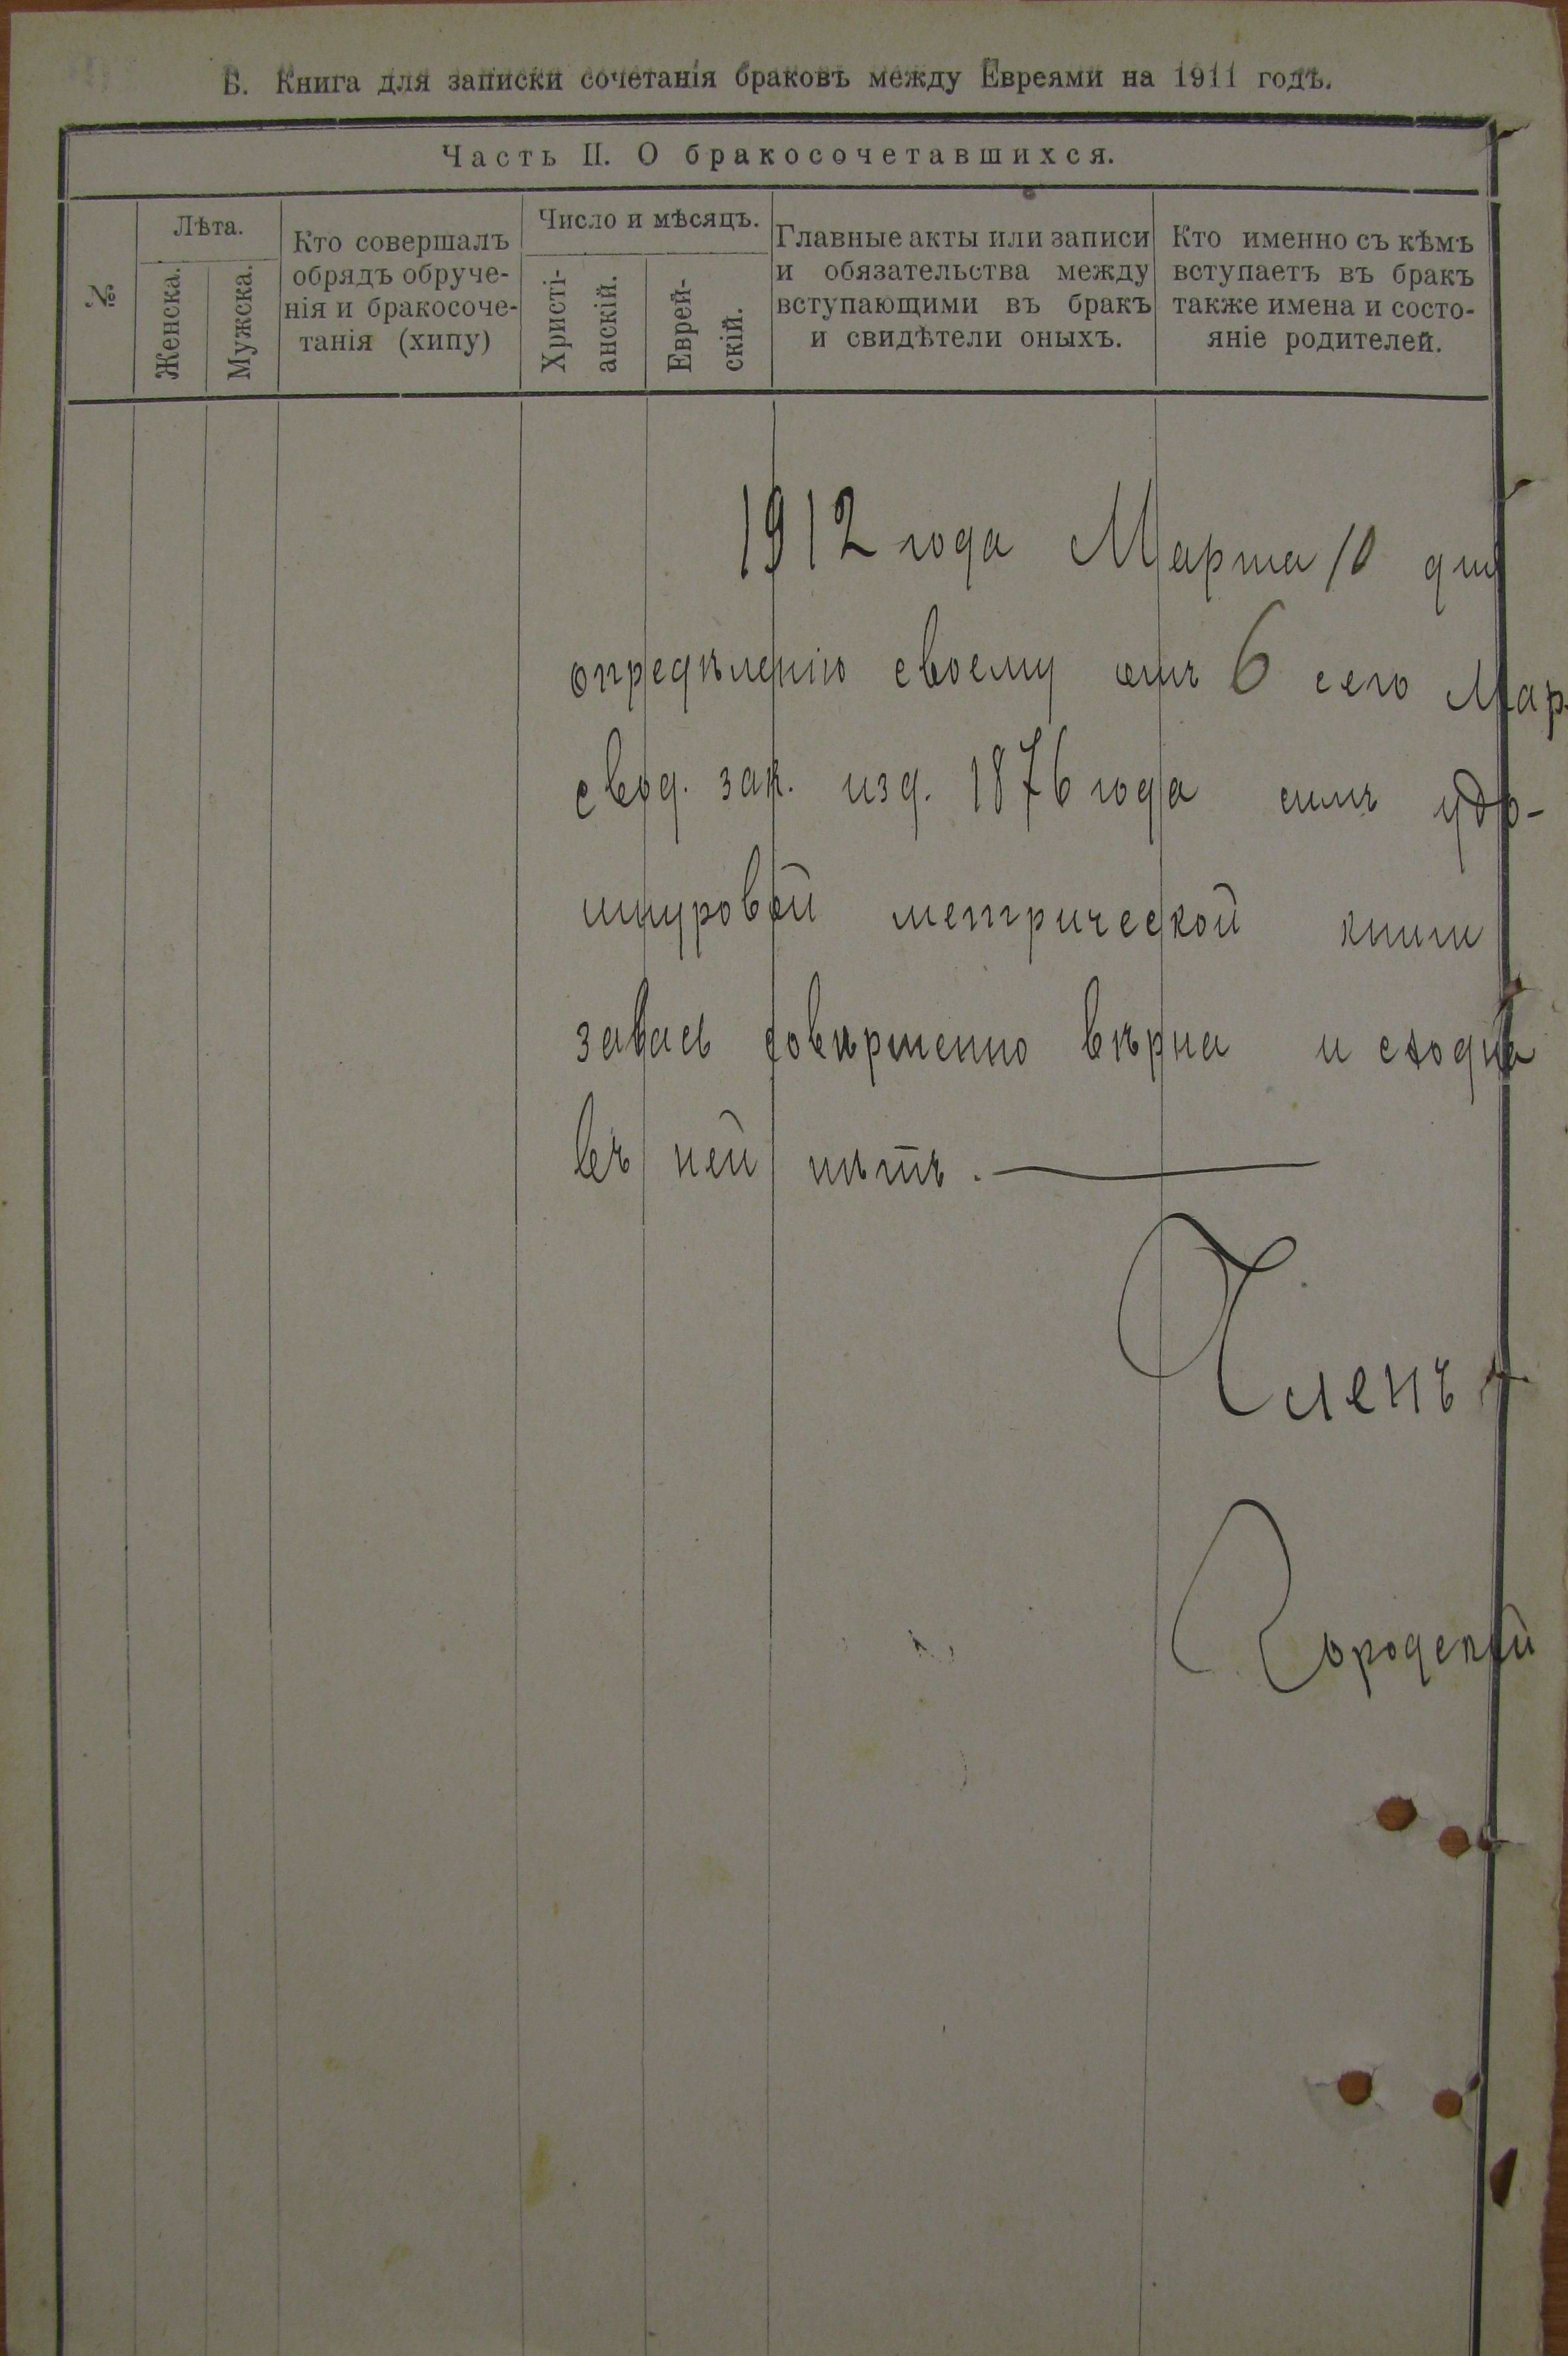 Б. Книга для записки сочетанія браковъ между Евреями на 1911 годъ.
Часть II. О бракосочетавшихся.
№
Лѣта.
Женска.
Мужска.
Кто совершалъ
обрядъ обруче-
нія и бракосоче-
танія (хипу)
Число и мѣсяцъ.
Христі-
анскій.
Еврей-
скій.
Главные акты или записи
и обязательства между
вступающими въ бракъ
и свидѣтели оныхъ.
Кто именно съ кѣмъ
вступаетъ въ бракъ
также имена и состо-
яніе родителей.
1912 года Марта 10 дня
опредѣленію своему отъ 6 сего Мар-
свод. зак. изд. 1876 года симъ удо-
шнуровой метрической книги
завась совѣршенно вѣрна и сходна
въ ней нѣтъ.
Членъ
Городской